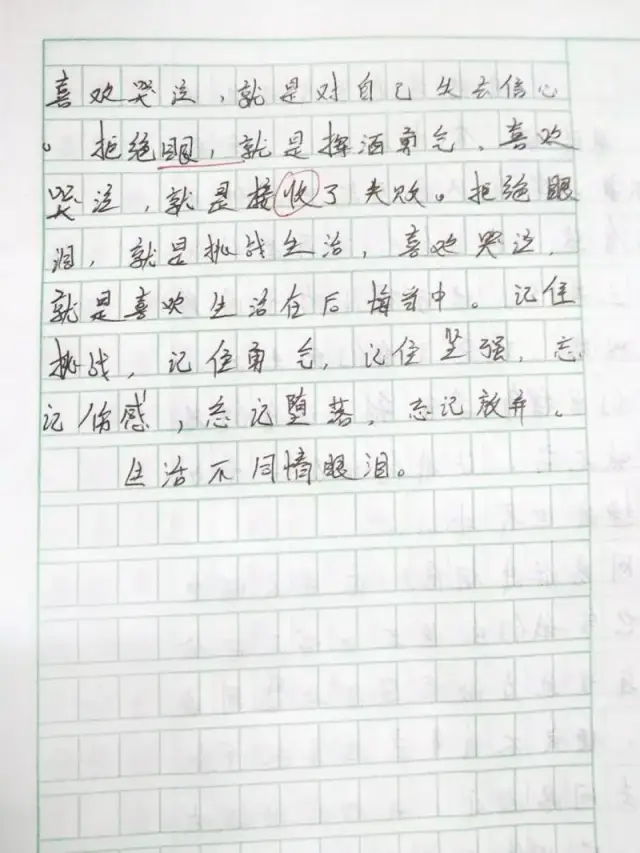 喜欢哭泣，就是对自己失去信心
。拒绝眼，就是挥洒勇气，喜欢
哭泣，就是接收了失败。拒绝眼
泪，就是挑战生活，喜欢哭泣，
就是喜欢生活在后悔当中。记住
挑战，记住勇气，记住坚强，忘
记伤感，忘记堕落，忘记放弃。
生活不同情眼泪。